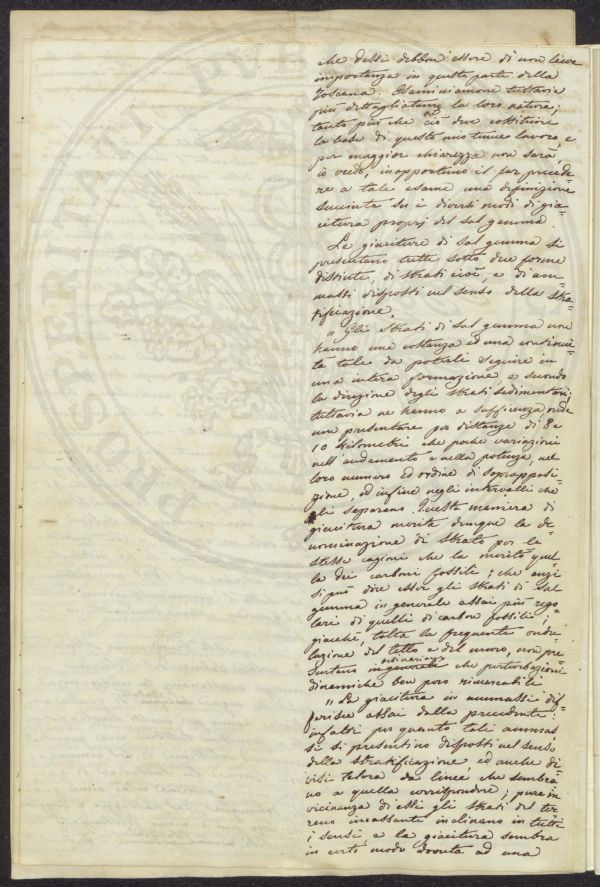 che delli debbon essere di non lieve
importanza in questa parte della
Toscana. Esaminiamone tuttavia
più dettagliatamte la loro natura;
tanto più che ciò deve costituire
la base di questo mio tenue lavoro, e
per maggior chiarezza non sarà,
io credo, inopportuno il far precede=
re a tale esame una definizione
succinta su i diversi modi di gia=
citura proprj del sal gemma.
Le giaciture di sal gemma si
presentano tutte sotto due forme
distinte, di strati cioè, e di am=
massi disposti nel senso della stra=
tificazione.
"Gli strati di sal gemma non
hanno una costanza ed una continui=
tà tale da poterli seguire in
una intera formazione, e secondo
la direzione degli strati sedimentarj;
tuttavia ne hanno a sufficienza, onde
non presentare per distanze di 8 e
10 kilometri che poche variazioni
nell'andamento e nella potenza, nel
loro numero ed ordine di soprapposi=
zione, ed infine negli intervalli che
gli separano. Questa maniera di
giacitura merita dunque la de=
nominazione di strato per le
stesse cagioni che la meritò quel=
la dei carboni fossili; che anzi
si può dire esser gli strati di sal
gemma in generale assai più rego=
lari di quelli di carbon fossile;
giacchè, tolta la frequente ondu=
lazione del tetto e del muro, non pre=
sentano in generale ordinario che perturbazioni
dinamiche ben poco rimarcabili
"La giacitura in ammassi dif=
ferisce assai dalla precedente:
infatti per quanto tali ammas=
si si presentino disposti nel senso
della stratificazione, ed anche di=
visi talora da linee che sembra=
no a quella corrispondere; pure in
vicinanza di essi gli strati del ter=
reno incassante inclinano in tutti
i sensi e la giacitura sembra
in certo modo dovuta ad una
PROSPERITATI PVBL